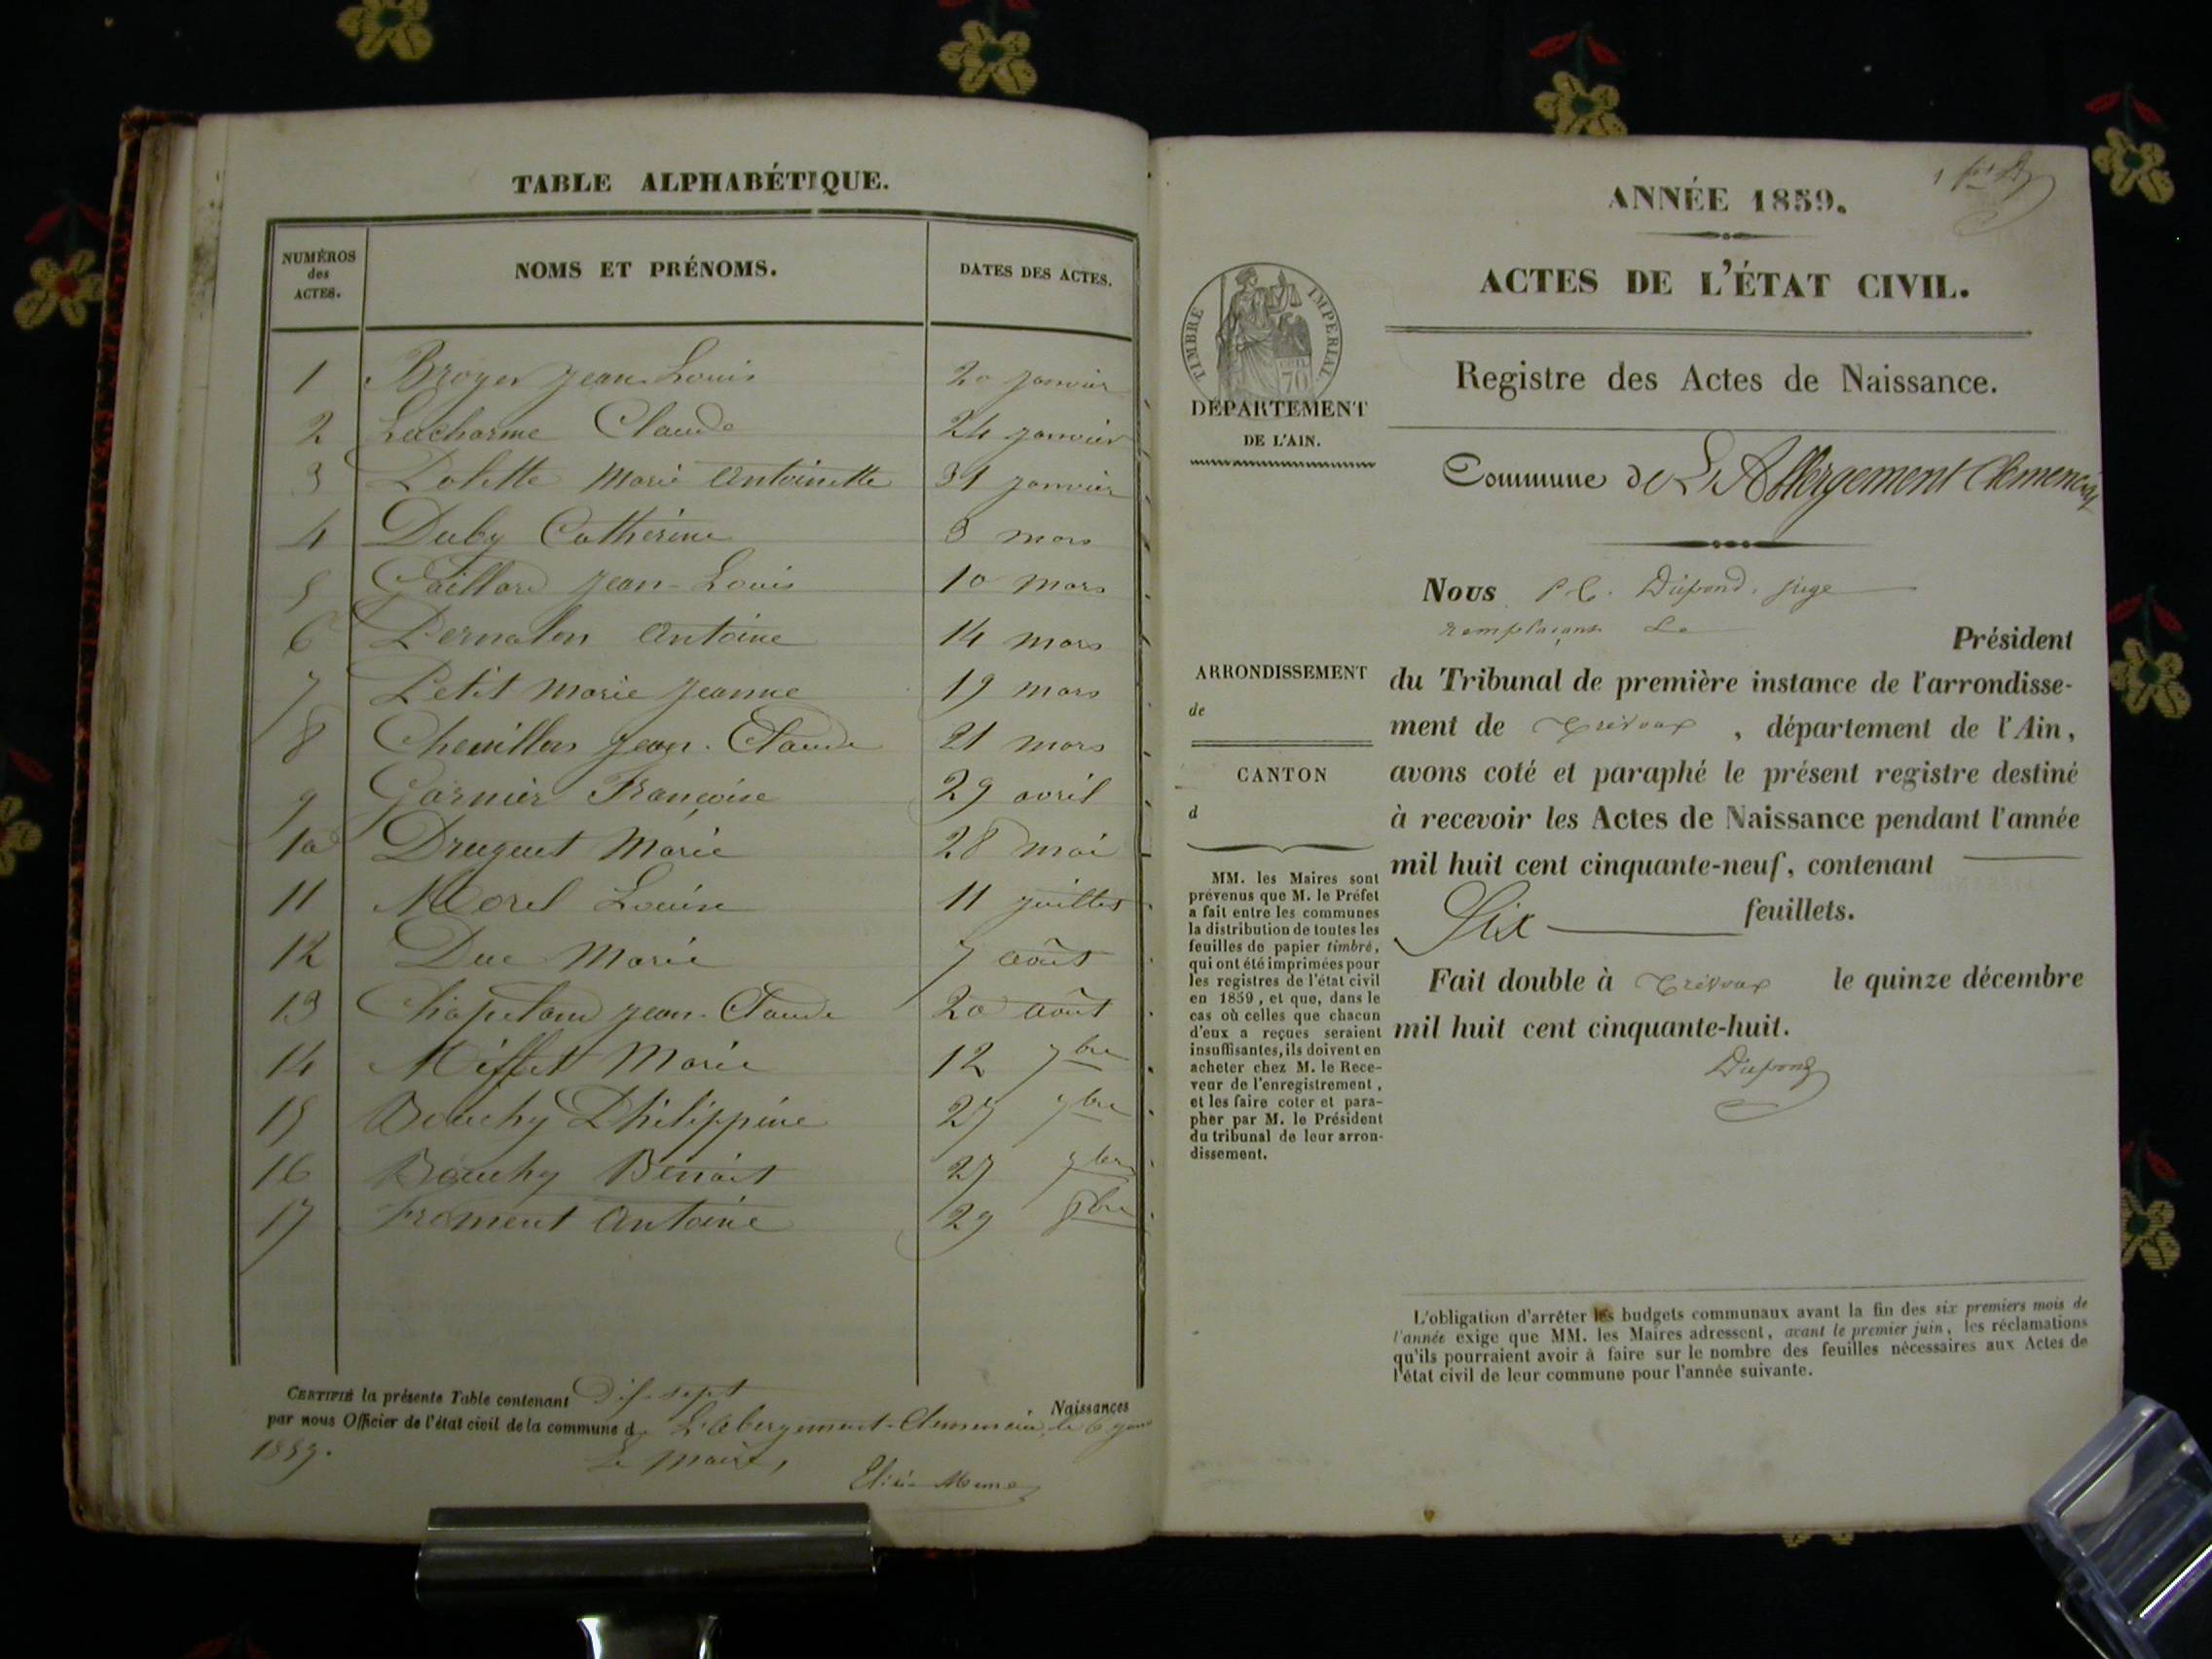 TABLE ALPHABÉTIQUE.
NUMÉROS
des
ACTES.
NOMS ET PRÉNOMS.
DATES DES ACTES.
1 Broyer Jean Louis 20 janvier
2 Lacharme Claude 24 janvier
3 Marie Antoinette 31 janvier
4 Duby Catherine 3 mars
5 Gaillard Jean-Louis 10 mars
6 Antoine 14 mars
7 Petit Marie Jeanne 19 mars
8 Jean-Claude 21 mars
9 Garnier Françoise 29 avril
10 Druguet Marie 28 mai
11 Morel Louise 11 juillet
12 Duc Marie 7 août
13 Chapeland Jean-Claude 20 août
14 Miffet Marie 12 7bre
15 Bouchy Philippine 27 7bre
16 Bouchy Benoit 27 7bre
17 Froment Antoine 29 8bre
CERTIFIÉ la présente Table contenant Dix-sept Naissances
par nous Officier de l'état civil de la commune de L'abergement-Clemencia, le 6 janv
1859.
Le Maire,
1
ANNÉE 1859.
ACTES DE L'ÉTAT CIVIL.
TIMBRE IMPERIAL
70
DÉPARTEMENT
DE L'AIN.
Registre des Actes de Naissance.
Commune de L'Abergement Clemencia
Nous P. C. Dupond, juge
remplaçant Le Président
du Tribunal de première instance de l'arrondisse-
ment de Trévoux, département de l'Ain,
avons coté et paraphé le présent registre destiné
à recevoir les Actes de Naissance pendant l'année
mil huit cent cinquante-neuf, contenant
Six feuillets.
Fait double à Trévoux le quinze décembre
mil huit cent cinquante-huit.
Dupond
ARRONDISSEMENT
de
CANTON
d
MM. les Maires sont
prévenus que M. le Préfet
a fait entre les communes
la distribution de toutes les
feuilles de papier timbré,
qui ont été imprimées pour
les registres de l'état civil
en 1859, et que, dans le
cas où celles que chacun
d'eux a reçues seraient
insuffisantes, ils doivent en
acheter chez M. le Rece-
veur de l'enregistrement,
et les faire coter et para-
pher par M. le Président
du tribunal de leur arron-
dissement.
L'obligation d'arrêter les budgets communaux avant la fin des six premiers mois de
l'année exige que MM. les Maires adressent, avant le premier juin, les réclamations
qu'ils pourraient avoir à faire sur le nombre des feuilles nécessaires aux Actes de
l'état civil de leur commune pour l'année suivante.